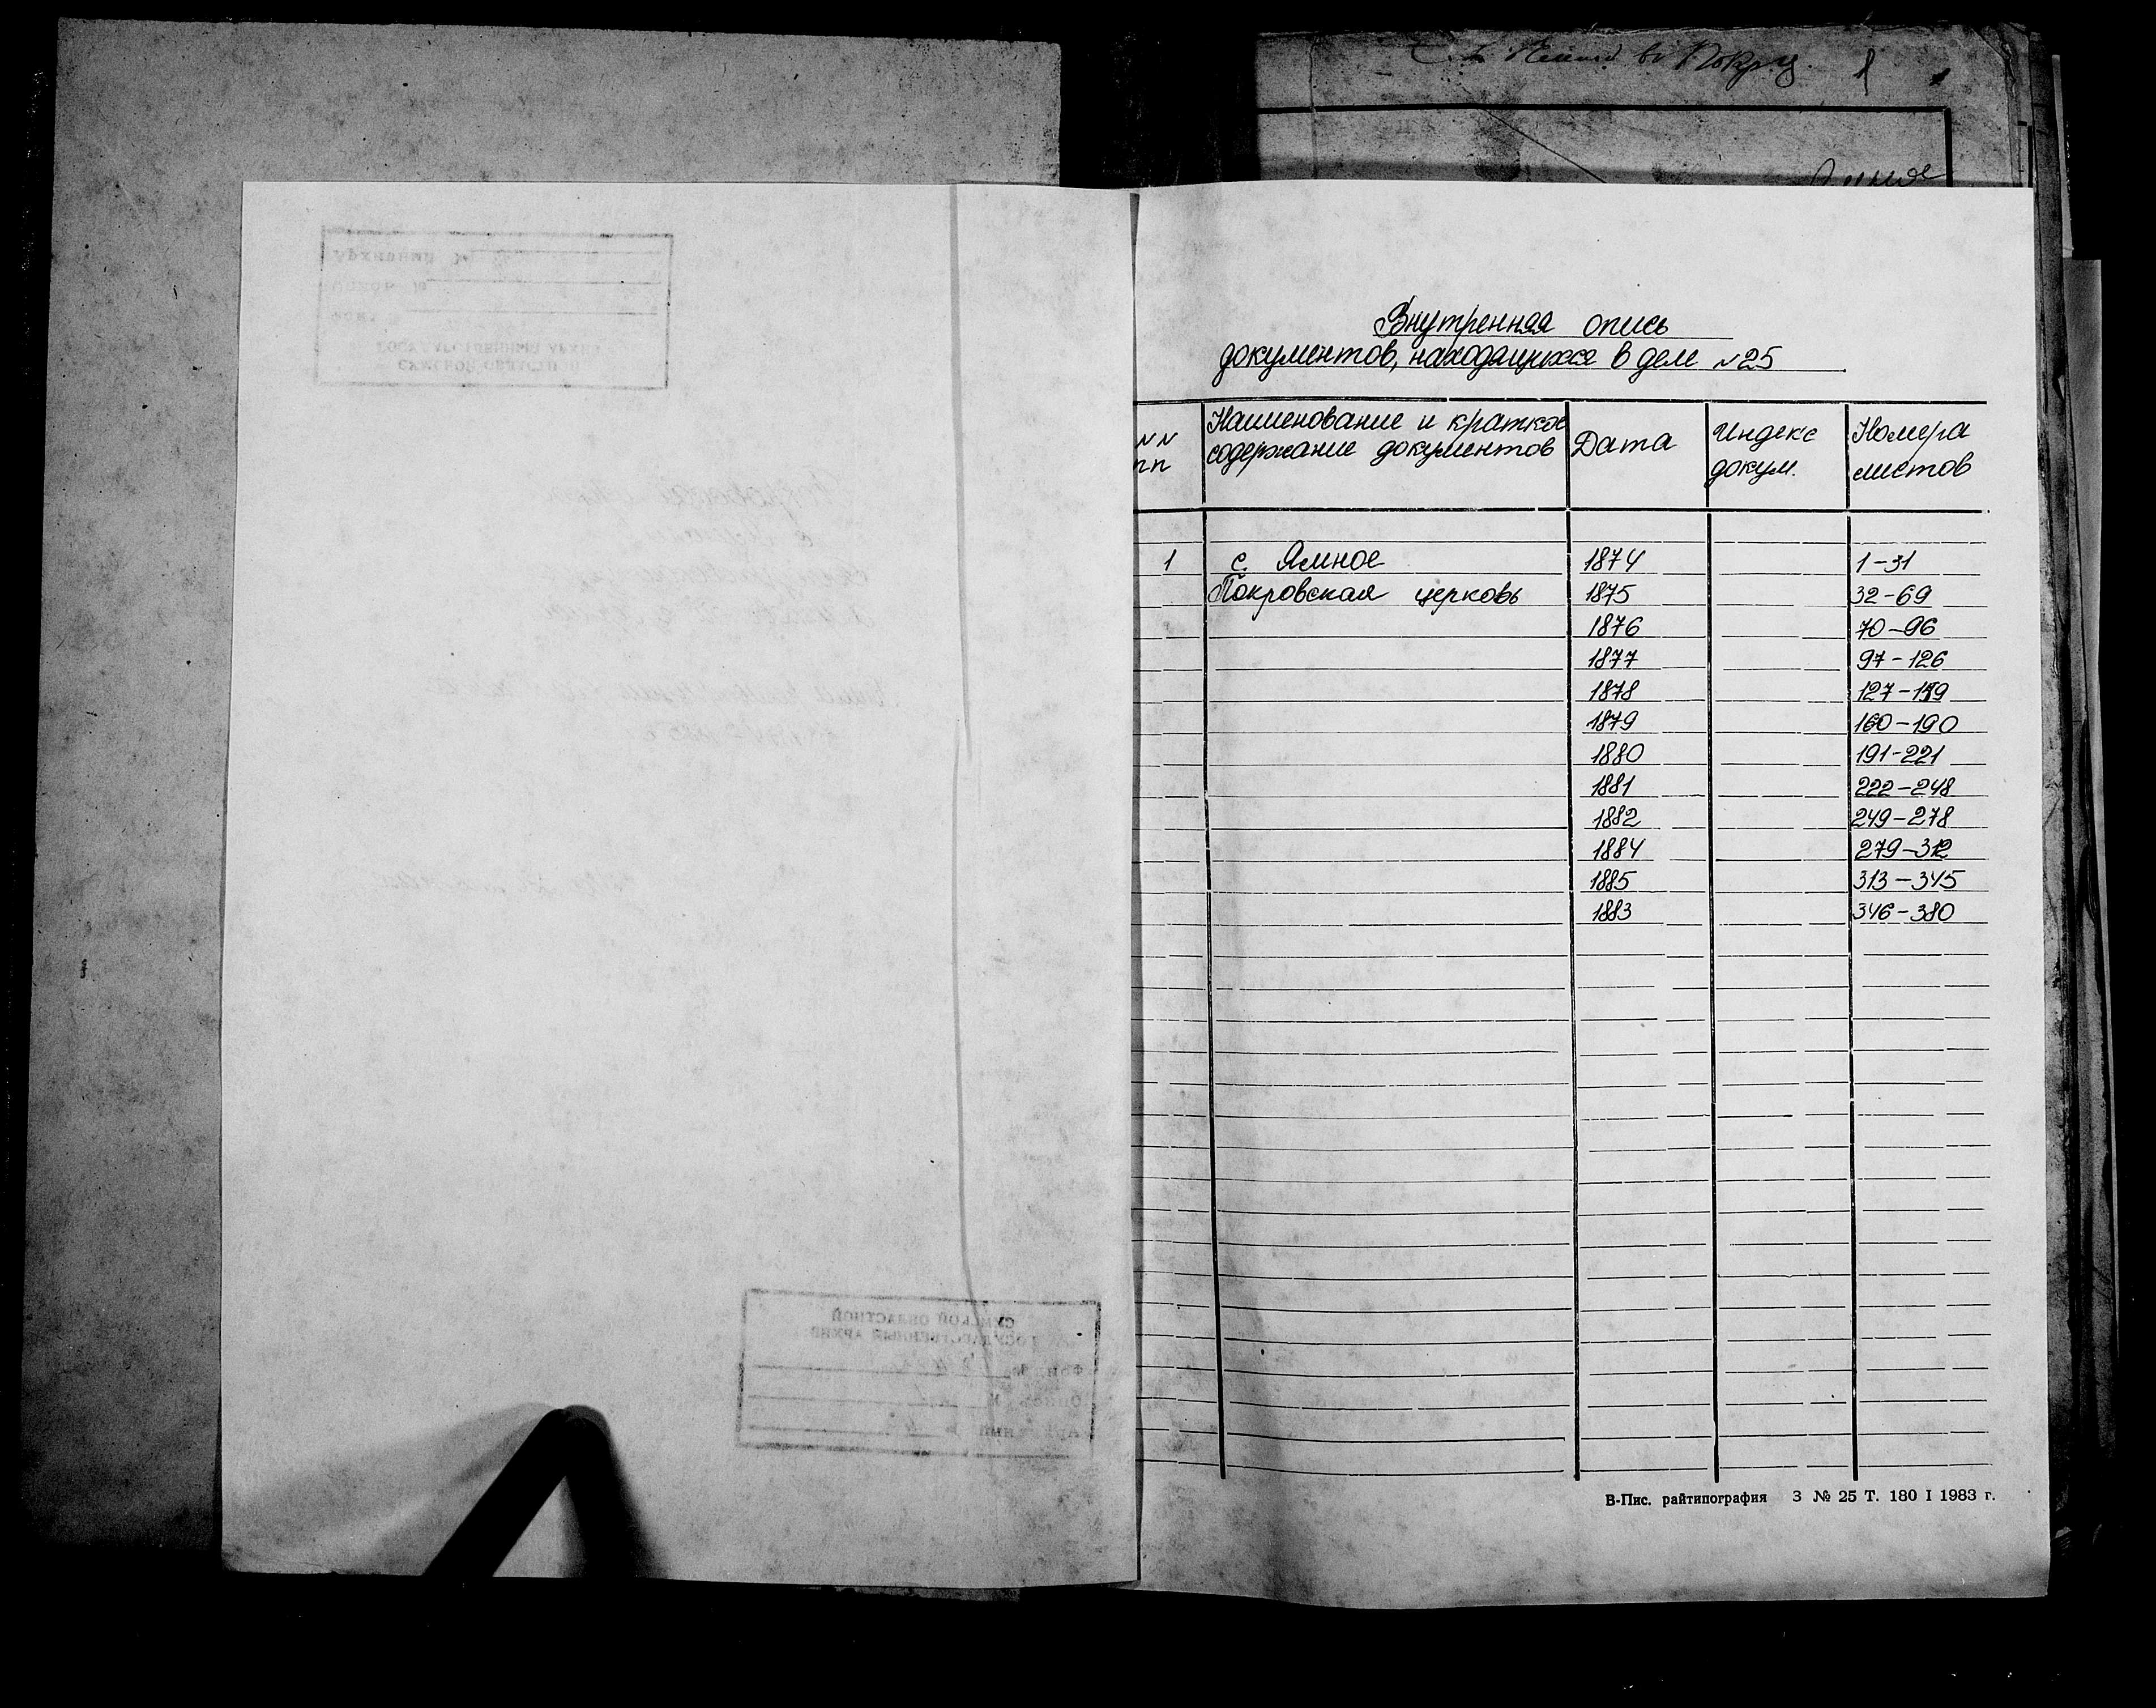 1
Ямное
Внутренняя опись
документов, находящихся в деле №25
№№ пп | Наименование и краткое содержание документов | Дата | Индекс докум. | Номера листов
1 с. Ямное 1874 1-31
Покровская церковь 1875 32-69
1876 70-96
1877 97-126
1878 127-159
1879 160-190
1880 191-221
1881 222-248
1882 249-278
1884 279-312
1885 313-345
1883 346-380
В-Пис. райтипография 3 № 25 Т. 180 I 1983 г.
СУМСКОЙ ОБЛАСТНОЙ
ГОСУДАРСТВЕННЫЙ АРХИВ